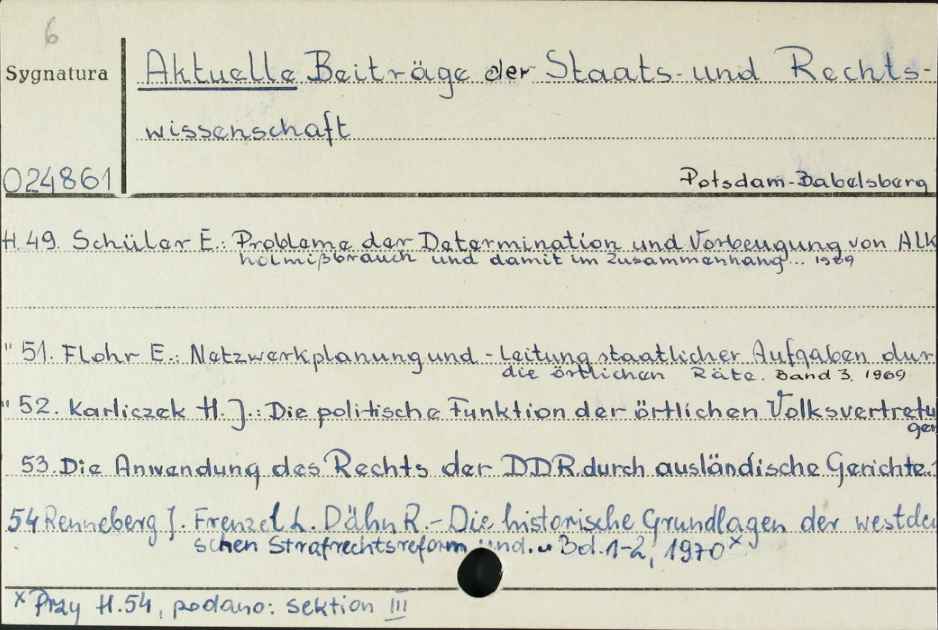 6
Sygnatura
Aktuelle Beiträge der Staats- und Rechts-
wissenschaft
024861
Potsdam-Babelsberg
H.49. Schüler E.: Probleme der Determination und Vorbeugung von Alk
holmißbrauch und damit im Zusammenhang... 1969
" 51. Flohr E.: Netzwerkplanung und -leitung staatlicher Aufgaben dur
die örtlichen Räte. Band 3. 1969
" 52. Karliczek H. J.: Die politische Funktion der örtlichen Volksvertretu
gen
53. Die Anwendung des Rechts der DDR durch ausländische Gerichte.
54 Renneberg J. Frenzel L. Dähn R. - Die historische Grundlagen der westdeu
schen Strafrechtsreform und. Bd. 1-2, 1970 x
x Przy H.54, podano: Sektion III